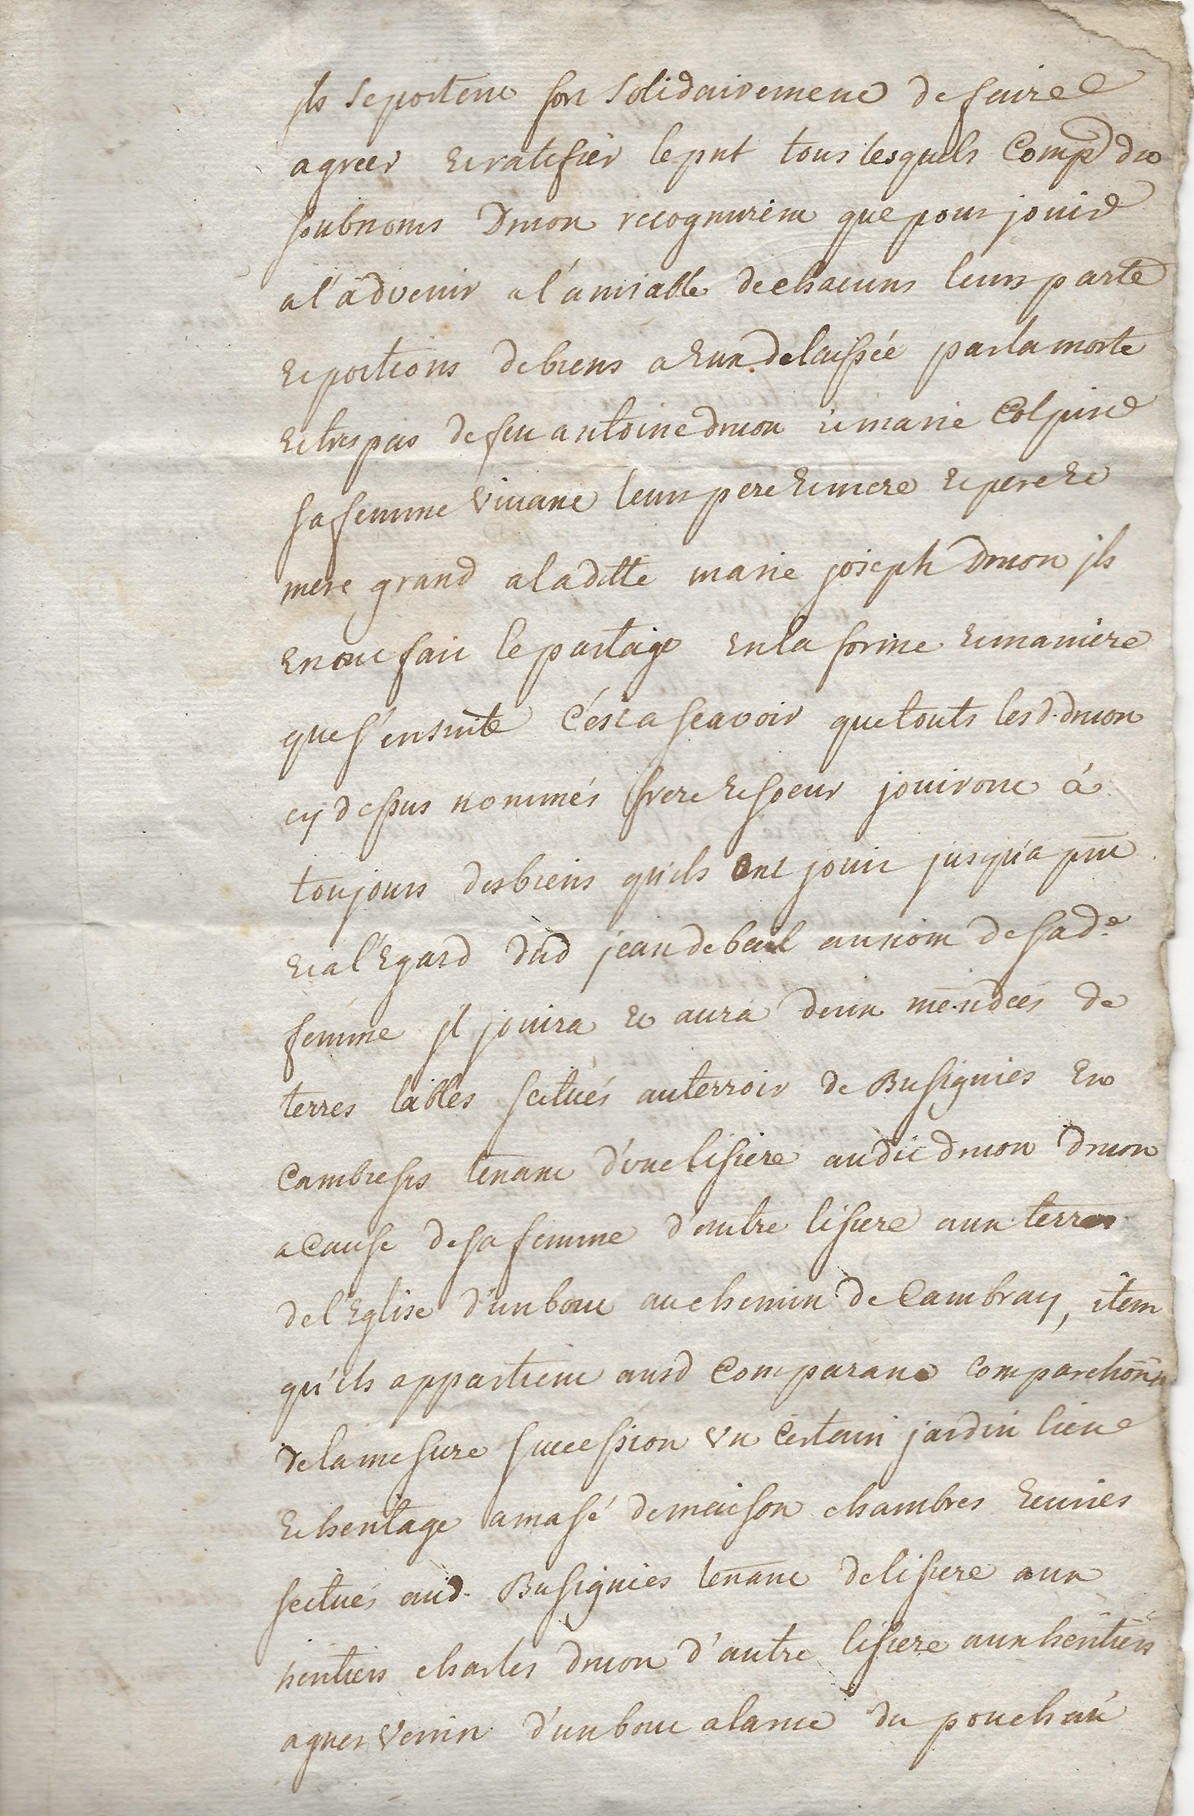 ils se portent fort solidairement de faire
agreer et ratifier le pnt tous lesquels Comp du
soubnoms Druon recognurent que pour jouir
a l'advenir a l'amiable de chacuns leurs parte
et portions de biens a eux delaissée par la morte
et trespas de feu antoine druon et marie Colpin
sa femme vivant leurs pere et mere et pere et
mere grand a la ditte marie joseph Druon ils
en ont fait le partage en la forme et maniere
que s'ensuite c'est a scavoir que touts lesd. druon
cy dessus nommés frere et soeur jouiront à
toujours des biens qu'ils ont jouir jusqu'a pnt
et a l'egard dud jean de bail au nom de sad.e
femme jl jouira et aura deux mencdées de
terres lables scitués au terroir de Busignies en
Cambresis tenant d'une lisiere audit druon druon
a cause de sa femme d'autre lisiere aux terres
de l'Eglise d'un bout au chemin de Cambray, item
qu'ils appartient ausd Comparant comparchonn
de la mesure succession un certain jardin lieu
et heritage amasé de maison chambres
scitués aud. Busignies tenant de lisiere aux
heritiers charles druon d'autre lisiere aux heritiers
agnes d'un bout a la rue du